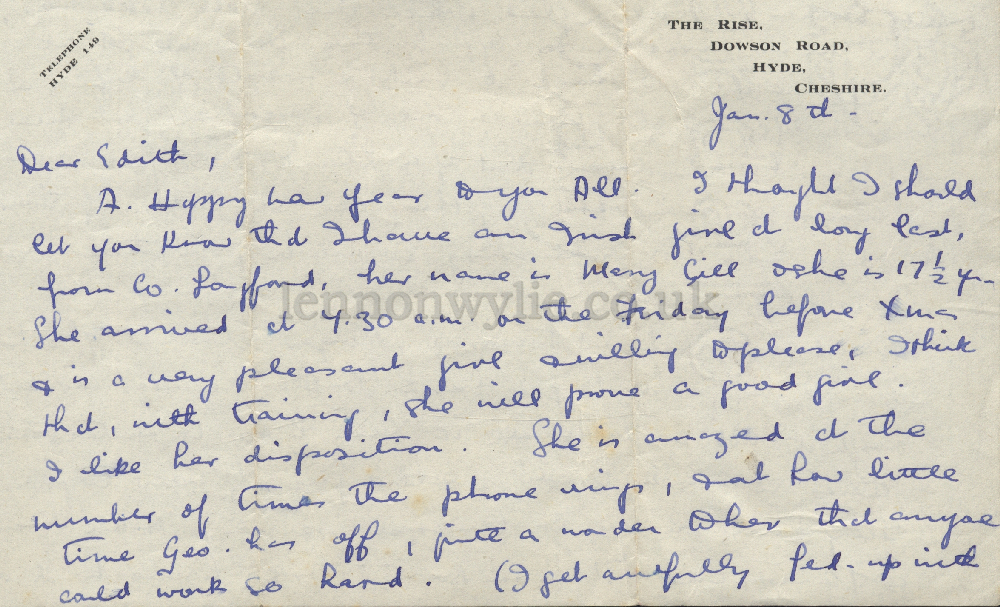 TELEPHONE
HYDE 149
THE RISE,
DOWSON ROAD,
HYDE,
CHESHIRE.
Jan. 8th.
Dear Edith,
A. Happy New Year to you All. I thought I should
let you know that I have an Irish girl at long last,
from Co. Longford, her name is Mary Gill & she is 17½ yrs
She arrived at 4.30 a.m. on the Friday before Xmas
& is a very pleasant girl & willing to please, I think
that, with training, she will prove a good girl.
I like her disposition. She is amazed at the
number of times the phone rings, & at how little
time Geo. has off, quite a wonder to her that anyone
could work so hard. (I get awfully fed-up with
lennonwylie.co.uk